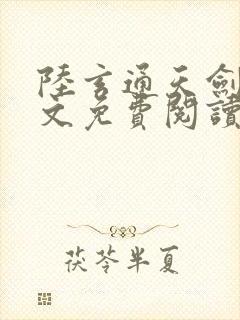 陸玄通天劍
文免費閱讀
茯苓半夏